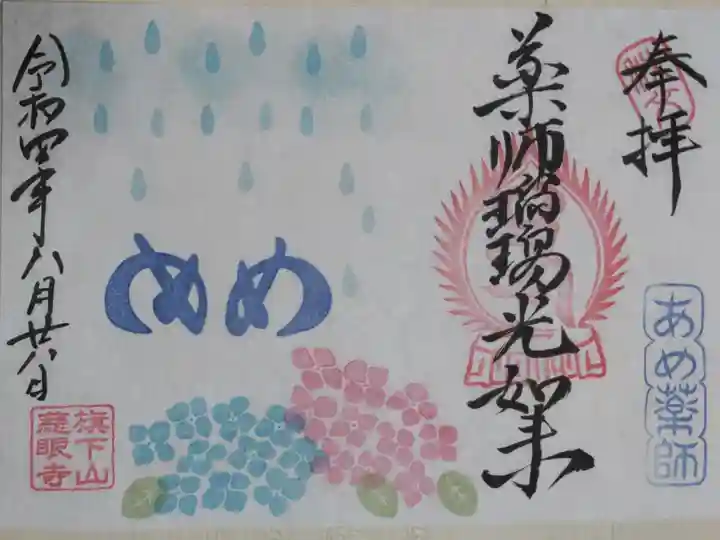 奉拝
あめ薬師
薬師瑠璃光如来
め め
令和四年八月廿八日
旗下山
慈眼寺